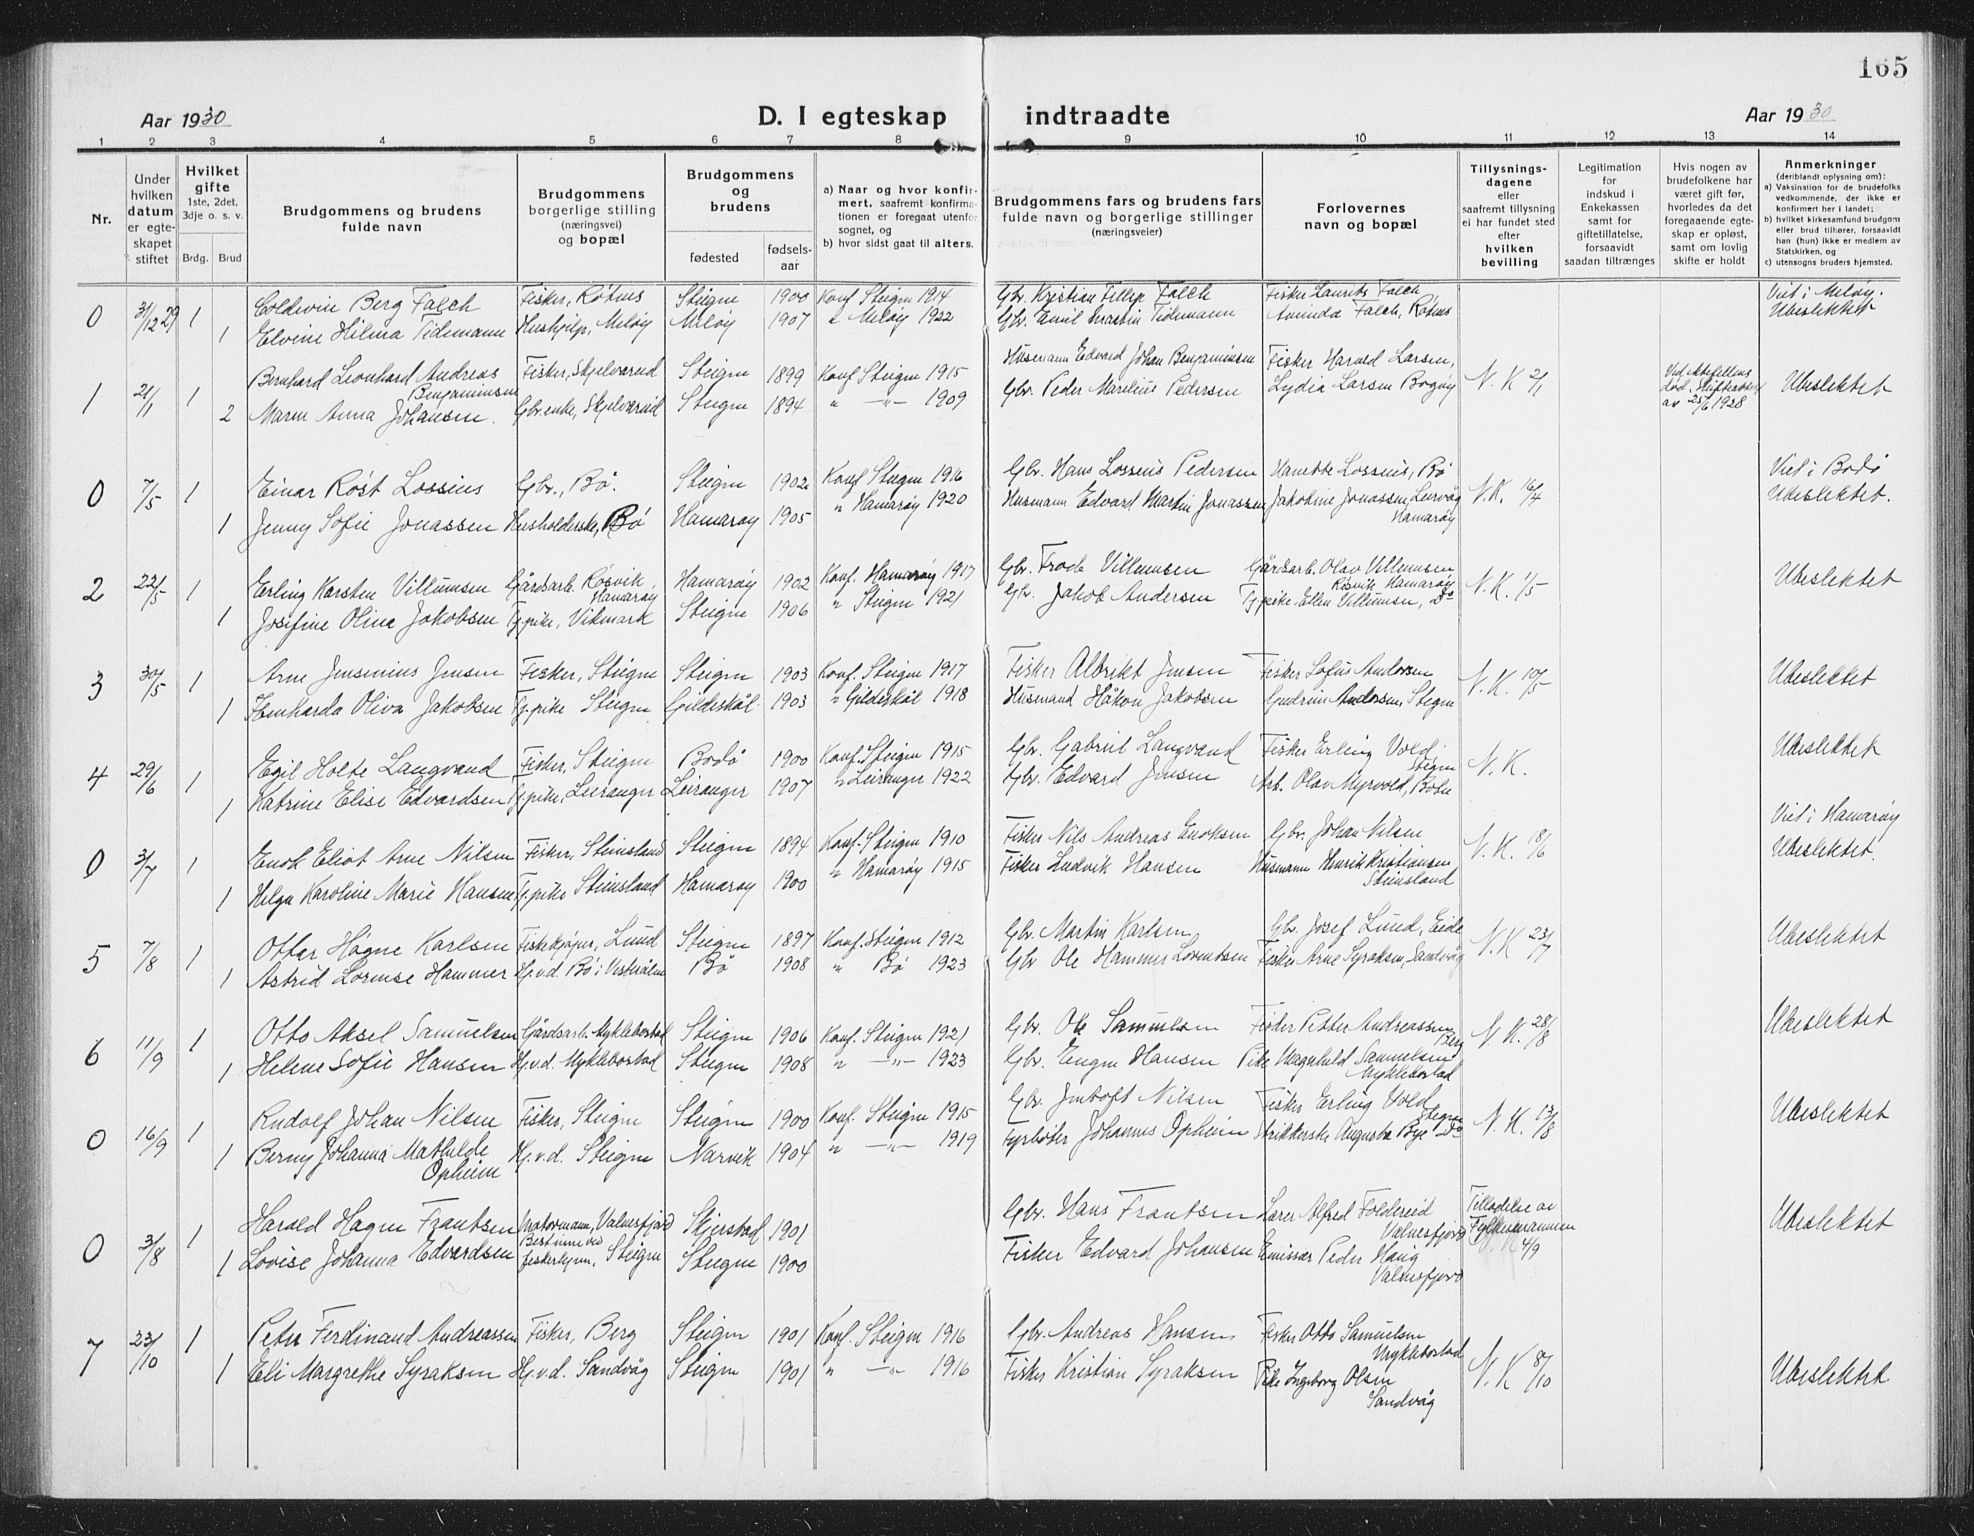 165
Aar 1930
D. I egteskap indtraadte
Aar 1930
1 2 3 4 5 6 7 8 9 10 11 12 13 14
Nr.
Under hvilken datum er egte-skapet stiftet
Hvilket gifte 1ste, 2det, 3dje o. s. v.
Brdg. Brud
Brudgommens og brudens fulde navn
Brudgommens borgerlige stilling (næringsvei) og bopæl
Brudgommens og brudens
fødested
fødsels-aar
a) Naar og hvor konfir-mert, saafremt konfirma-tionen er foregaat utenfor sognet, og
b) hvor sidst gaat til alters.
Brudgommens fars og brudens fars fulde navn og borgerlige stillinger (næringsveier)
Forlovernes navn og bopæl
Tillysnings-dagene eller saafremt tillysning ei har fundet sted efter hvilken bevilling
Legitimation for indskud i Enkekassen samt for giftetillatelse, forsaavidt saadan tiltrænges
Hvis nogen av brudefolkene har været gift før, hvorledes da det foregaaende egte-skap er opløst, samt om lovlig skifte er holdt
Anmerkninger (deriblandt oplysning om):
a) Vaksination for de brudefolks vedkommende, der ikke er konfirmert her i landet;
b) hvilket kirkesamfund brudgom eller brud tilhører, forsaavidt han (hun) ikke er medlem av Statskirken, og
c) utensogns bruders hjemsted.
0 31/12 29 1 Coldevin Berg Falch Fisker, Røtnes Steigen 1900 Konf. Steigen 1914 Gbr. Kristian Fillip Falch Fisker Laurits Falch Viet i Meløy.
1 Elvine Hilma Tidemann Hushjelp, Meløy Meløy 1907 " Meløy 1922 Gbr. Emil Martin Tidemann Aminda Falch, Røtnes Ubeslektet
1 21/1 1 Bernhard Leonhard Andreas Benjaminsen Fisker, Skjelvareid Steigen 1899 Konf Steigen 1915 Husemann Edvard Johan Benjaminsen Fisker Harald Larsen, N. K 2/1 Ved ektefellens død. Skifteattest av 25/6 1928 Ubeslektet
2 Maren Anna Johansen. Gbr.enke, Skjelvareid Steigen 1894 " -"- 1909 Gbr. Peder Marelius Pedersen Lydia Larsen Bogøy
0 7/5 1 Einar Røst Lossius Gbr., Bø. Steigen 1902 Konf Steigen 1916 Gbr. Hans Lossius Pedersen Hanette Lossius, Bø N. K. 16/4 Viet i Bodø
1 Jenny Sofie Jonassen Husholderske, Bø Hamarøy 1905 " Hamarøy 1920 Husmann Edvard Martin Jonassen Jakobine Jonassen, Leirvåg Hamarøy Ubeslektet.
2 22/5 1 Erling Karsten Villumsen Gårdsarb. Røsvik, Hamarøy Hamarøy 1902 Konf. Hamarøy 1917 Gbr. Frode Villumsen Gårdsarb. Olav Villumsen Røsvik Hamarøy N. K. 1/5 Ubeslektet
1 Josefine Olina Jakobsen Tj.pike, Vikmark Steigen 1906 " Steigen 1921 Gbr. Jakob Andersen Tj.pike Ellen Villumsen, Do
3 30/5 1 Arne Jensenius Jensen Fisker, Steigen Steigen 1903 Konf. Steigen 1917 Fisker Albrikt Jensen Fisker Sofus Andersen N. K. 10/5 Ubeslektet
1 Henharda Oliva Jakobsen Tj.pike Steigen Gildeskål 1903 " Gildeskål 1918 Husmand Håkon Jakobsen Gudrun Andersen, Steigen
4 29/6 1 Egil Holte Langvand Fisker, Steigen Bodø 1900 Konf. Steigen 1915 Gbr. Gabriel Langvand Fisker Erling Vold. Steigen N. K. Ubeslektet
1 Katrine Elise Edvardsen Tj.pike, Leiranger Leiranger 1907 " Leiranger 1922 Gbr. Edvard Jensen Arb. Olav Myrvold,
0 3/7 1 Enok Eliot Arne Nilsen Fisker, Steinsland Steigen 1894 Konf. Steigen 1910 Fisker Nils Andreas Enoksen Gbr. Johan Nilsen N. K. 18/6 Viet i Hamarøy
1 Helga Karoline Marie Hansen Tj.pike Steinsland Hamarøy 1900 " Hamarøy 1915 Fisker Ludvik Hansen Husmann Henrik Kristiansen Steinsland Ubeslektet.
5 7/8 1 Ottar Hagne Karlsen Fiskekjøper, Lund Steigen 1897 Konf. Steigen 1912 Gbr. Martin Karlsen Gbr. Josef Lund, Eide N. K 23/7 Ubeslektet
1 Astrid Lorense Hammer Hj.v.d. Bø i Vesterålen Bø 1908 " Bø 1923 Gbr Ole Hammer Lorentsen Fisker Arne Syraksen, Sandvåg
6 11/9 1 Otto Aksel Samuelsen Gårdsarb. Myklebostad Steigen 1906 Konf. Steigen 1921 Gbr. Ole Samuelsen Fisker Petter Andreassen Berg N. K. 28/8 Ubeslektet
1 Helene Sofie Hansen Hj.v.d. Myklebostad Steigen 1908 " -"- 1923 Gbr. Eugen Hansen Pike Magnhild Samuelsen Myklebostad
0 16/9 1 Rudolf Johan Nilsen Fisker, Steigen Steigen 1900 Konf. Steigen 1915 Gbr. Jentoft Nilsen Fisker Erling Vold Steigen N. K. 13/8 Ubeslektet
1 Berny Johanna Mathilde Opheim Hj.v.d. Steigen Narvik 1904 " -"- 1919 Fyrbøter Johannes Opheim Strikkerske Augusta Bye Do
0 3/8 1 Harald Hagen Frantsen Motormann, Valnesfjord Skjerstad 1901 Gbr. Hans Frantsen Lærer Alfred Foldereid Valnesfjord Tilladelse av Fylkesmannen 4/9 Ubeslektet
1 Lovise Johanna Edvardsen Bestinne ved fiskerhjem, Steigen Steigen 1900 Fisker Edvard Johansen Emissær Peder Haug Valnesfjord
7 23/10 1 Peter Ferdinand Andreassen Fisker, Berg Steigen 1901 Konf. Steigen 1916 Gbr. Andreas Hansen Fisker Otto Samuelsen Myklebostad N. K 8/10 Ubeslektet
1 Eli Margrethe Syraksen Hj.v.d. Sandvåg Steigen 1901 " -"- 1916 Fisker Kristian Syraksen Pike Ingeborg Olsen Sandvåg